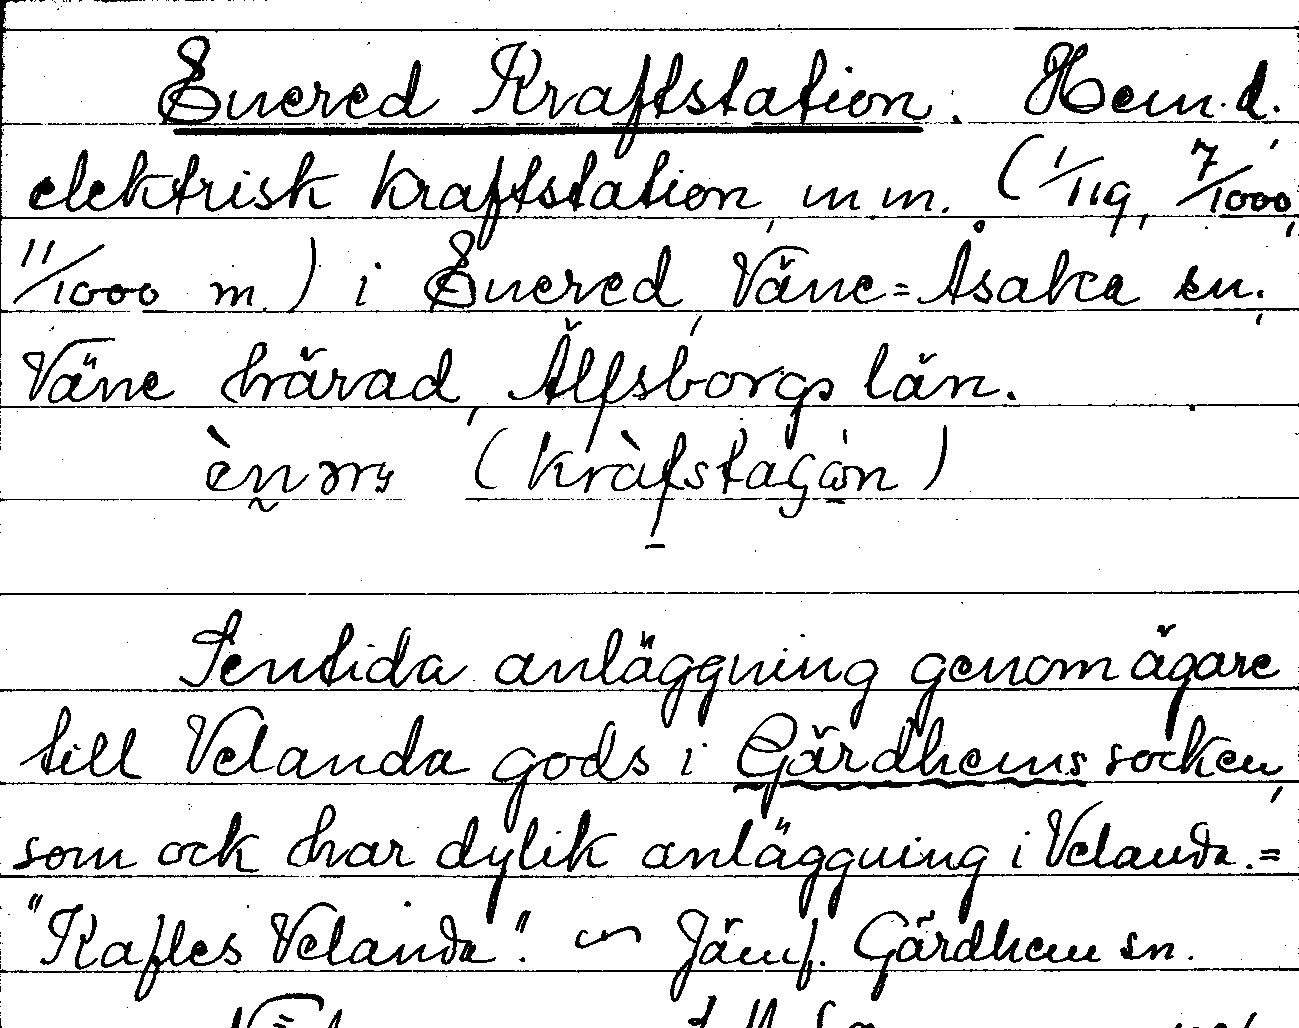 Enered Kraftstation. Hem.d.
elektrisk kraftstation, m.m. (1/119, 7/1000,
11/1000 m.) i Enered, Väne=Åsaka sn.,
Väne härad, Älfsborgs län.
Sentida anläggning genom ägare
till Velanda gods i Gärdhems socken,
som ock har dylik anläggning i Velanda.=
"Kafles Velanda". ~ Jämf. Gärdhem sn.